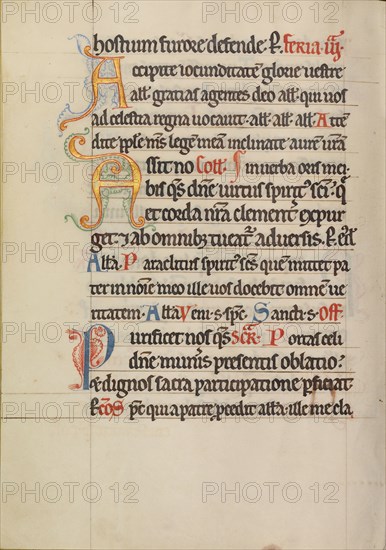 hostium furore defende. R. feria iii.
Accipite iocunditatē glorie vestre
all'. gratias agentes deo all'. qui uos
ad celestia regna uocauit. all'. all'. all'. Attē
dite pple ms legē meā inclinate aurē ur̄ā
Assit no Coll'. In uerba oris mei.
bis q̄s dn̄e uirtus spirit' sc̄i. q̄
et corda nr̄a clementer expur
get. ⁊ ab omnibꝫ tueat' aduersis. R.
Alla. Paraclitus spirit' sc̄s quē mittet pa
ter in nōīe meo ille uos docebit omnē ue
ritatem. Alla Veni. s. spē. Sancti. s. Off.
Purificet nos q̄s Scr̄. Portas celi
dn̄e mun̄is presentis oblatio.
⁊ dignos sacra participatione pficiat.
Cō Spc qui a patre pcedit alla. ille me cla
PHOTO 12